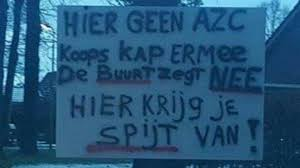 HIER GEEN AZC
Koops KAP ERMEE
De BUURT ZEGT NEE
HIER KRIJG JE
SPIJT VAN!